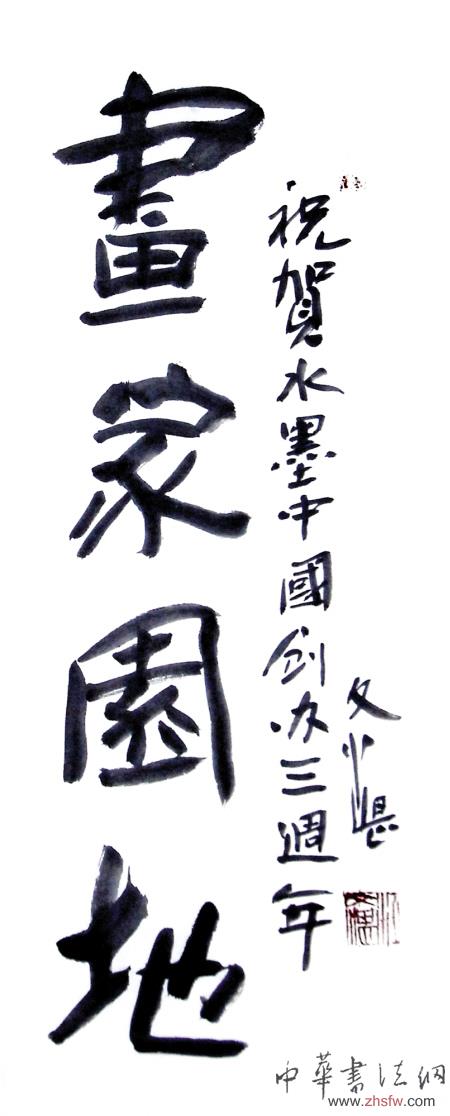 畫家園地
祝賀水墨中國創办三週年
中華書法網
www.zhsfw.com